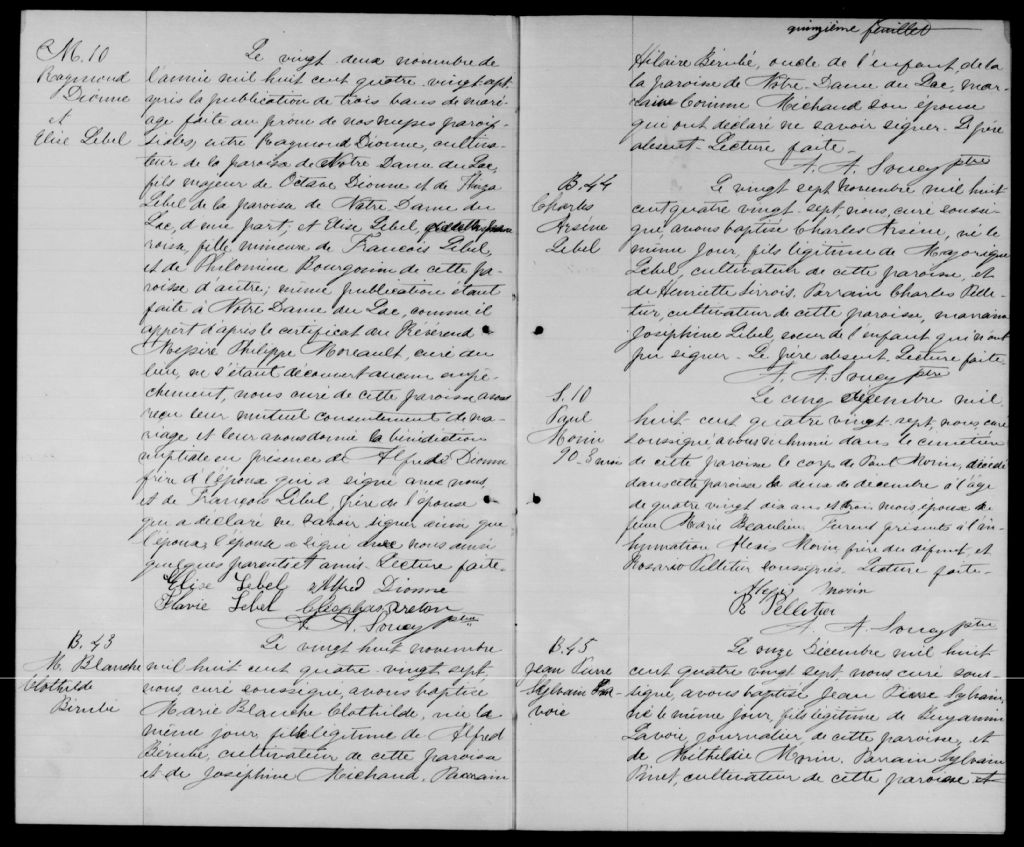 M. 10
Raymond
Dionne
et
Elise Lebel
Le vingt deux novembre de
l'annee mil huit cent quatre vingt sept,
après la publication de trois bans de mari-
age faite au prône de nos messes parois-
siales, entre Raymond Dionne, cultiva-
teur de la paroisse de Notre Dame du Lac,
fils majeur de Octave Dionne et de
Lebel de la paroisse de Notre Dame du
Lac, d'une part; et Elise Lebel, de cette pa-
roisse, fille mineure de Francois Lebel,
et de Philomine Bourgoine de cette pa-
roisse d'autre; même publication étant
faite à Notre Dame du Lac, comme il
appert d'après le certificat du Révérend
Messire Philippe Moreault, curé du
lieu, ne s'étant découvert aucun empê-
chement, nous curé de cette paroisse avons
reçu leur mutuel consentement de ma-
riage et leur avons donné la bénédiction
nuptiale en présence de Alfred Dionne
frère d'l'époux qui a signé avec nous,
et de François Lebel, père de l'épouse
qui a déclaré ne savoir signer ainsi que
l'époux, l'épouse a signé avec nous ainsi
quelques parents et amis. Lecture faite.
Elise Lebel Alfred Dionne
Flavie Lebel Cléophas Breton
A. A. Soucy ptre
B. 43
M. Blanche
Clothilde
Bérubé
Le vingt huit novembre
mil huit cent quatre vingt sept,
nous, curé soussigné, avons baptisé
Marie Blanche Clothilde, née la
même jour, fille légitime de Alfred
Bérubé, cultivateur de cette paroisse
et de Joséphine Michaud. Parrain
quinzième feuillet
Hilaire Bérubé, oncle de l'enfant, de la
la paroisse de Notre Dame du Lac, mar-
raine Corinne Michaud son épouse
qui ont déclaré ne savoir signer. Le père
absent. Lecture faite.
A. A. Soucy ptre
B. 44
Charles
Arsène
Lebel
Le vingt sept novembre mil huit
cent quatre vingt sept, nous, curé soussi-
gné avons baptisé Charles Arsène, né le
même jour, fils légitime de Majorique
Lebel, cultivateur de cette paroisse, et
de Henriette Sirrois. Parrain Charles Pelle-
tier, cultivateur de cette paroisse, marraine
Josephine Lebel, soeur de l'enfant qui n'ont
pu signer. Le père absent. Lecture faite.
A. A. Soucy ptre
S. 10
Paul
Morin
90 3 mois
Le cinq décembre mil
huit cent quatre vingt sept, nous, curé
soussigné avons inhumé dans le cimetière
de cette paroisse le corps de Paul Morin, décédé
dans cette paroisse le deux de décembre à l'âge
de quatre vingt dix ans et trois mois époux de
feue Marie Beaulieu. Furent présents à l'in-
humation Alexis Morin, frère du défunt, et
Rosario Pelletier soussignés. Lecture faite.
Alexis Morin
R Pelletier
A. A. Soucy ptre
B. 45
Jean Pierre
Sylvain La-
voie
Le onze Décembre mil huit
cent quatre vingt sept, nous curé sous-
signé, avons baptisé Jean Pierre Sylvain,
né le même jour, fils légitime de Benjamin
Lavoie, journalier de cette paroisse, et
de Mithildie Morin. Parrain Sylvain
Pinet, cultivateur de cette paroisse et